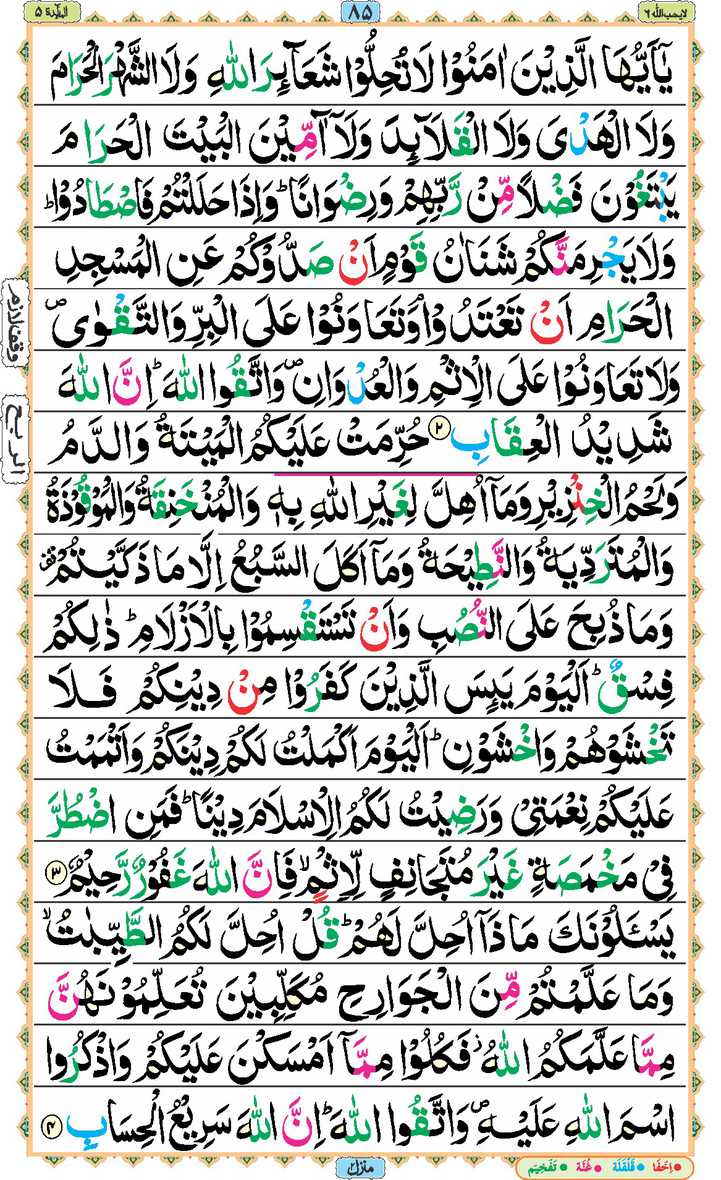 لايحب الله ٦
٨٥
المآئدة ٥
يٰۤاَيُّهَا الَّذِيۡنَ اٰمَنُوۡا لَا تُحِلُّوۡا شَعَآئِرَ اللّٰهِ وَلَا الشَّهۡرَ الۡحَـرَامَ
وَلَا الۡهَدۡىَ وَلَا الۡقَلَٓائِدَ وَلَاۤ آٰمِّيۡنَ الۡبَيۡتَ الۡحَـرَامَ
يَبۡتَغُوۡنَ فَضۡلًا مِّنۡ رَّبِّهِمۡ وَرِضۡوَانًا‌ ؕ وَاِذَا حَلَلۡتُمۡ فَاصۡطَادُوۡا‌ ؕ
وَلَا يَجۡرِمَنَّكُمۡ شَنَاٰنُ قَوۡمٍ اَنۡ صَدُّوۡكُمۡ عَنِ الۡمَسۡجِدِ
الۡحَـرَامِ اَنۡ تَعۡتَدُوۡا‌ ۘ وَتَعَاوَنُوۡا عَلَى الۡبِرِّ وَالتَّقۡوٰى‌ ۖ
وَلَا تَعَاوَنُوۡا عَلَى الۡاِثۡمِ وَالۡعُدۡوَانِ‌ ۖ وَاتَّقُوا اللّٰهَ ‌ؕ اِنَّ اللّٰهَ
شَدِيۡدُ الۡعِقَابِ‏ ٢ حُرِّمَتۡ عَلَيۡكُمُ الۡمَيۡتَةُ وَالدَّمُ
وَلَحۡمُ الۡخِنۡزِيۡرِ وَمَاۤ اُهِلَّ لِغَيۡرِ اللّٰهِ بِهٖ وَالۡمُنۡخَنِقَةُ وَالۡمَوۡقُوۡذَةُ
وَالۡمُتَرَدِّيَةُ وَالنَّطِيۡحَةُ وَمَاۤ اَكَلَ السَّبُعُ اِلَّا مَا ذَكَّيۡتُمۡ
وَمَا ذُبِحَ عَلَى النُّصُبِ وَاَنۡ تَسۡتَقۡسِمُوۡا بِالۡاَزۡلَامِ‌ ؕ ذٰلِكُمۡ
فِسۡقٌ‌ ؕ اَلۡيَوۡمَ يَئِسَ الَّذِيۡنَ كَفَرُوۡا مِنۡ دِيۡنِكُمۡ فَلَا
تَخۡشَوۡهُمۡ وَاخۡشَوۡنِ‌ ؕ اَلۡيَوۡمَ اَكۡمَلۡتُ لَكُمۡ دِيۡنَكُمۡ وَاَتۡمَمۡتُ
عَلَيۡكُمۡ نِعۡمَتِىۡ وَرَضِيۡتُ لَكُمُ الۡاِسۡلَامَ دِيۡنًا‌ ؕ فَمَنِ اضۡطُرَّ
فِىۡ مَخۡمَصَةٍ غَيۡرَ مُتَجَانِفٍ لِّاِثۡمٍ‌ۙ فَاِنَّ اللّٰهَ غَفُوۡرٌ رَّحِيۡمٌ ٣
يَسۡـئَلُوۡنَكَ مَاذَاۤ اُحِلَّ لَهُمۡ‌ؕ قُلۡ اُحِلَّ لَـكُمُ الطَّيِّبٰتُ‌ ۙ
وَمَا عَلَّمۡتُمۡ مِّنَ الۡجَـوَارِحِ مُكَلِّبِيۡنَ تُعَلِّمُوۡنَهُنَّ
مِمَّا عَلَّمَكُمُ اللّٰهُ‌ ؗ فَكُلُوۡا مِمَّاۤ اَمۡسَكۡنَ عَلَيۡكُمۡ وَاذۡكُرُوا
اسۡمَ اللّٰهِ عَلَيۡهِ‌ ۖ وَاتَّقُوا اللّٰهَ‌ ؕ اِنَّ اللّٰهَ سَرِيۡعُ الۡحِسَابِ ٤
وقف لازم
الربع
منزل ٢
اِخۡفَا • قَلۡقَلَه • غُنَّه • تَفۡخِيۡم